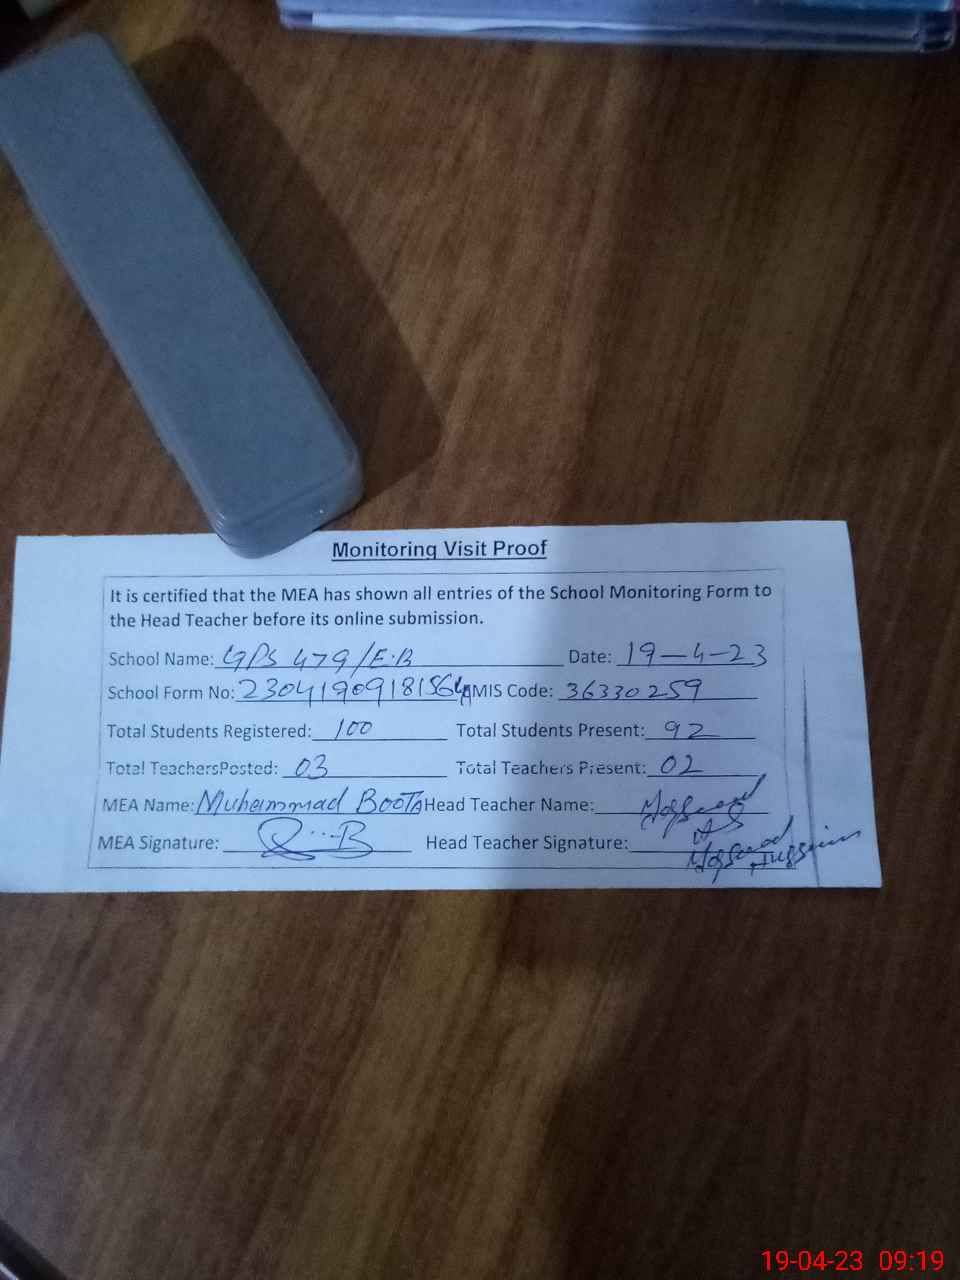 Monitoring Visit Proof
It is certified that the MEA has shown all entries of the School Monitoring Form to
the Head Teacher before its online submission.
School Name: GPS 479/E.B Date: 19-4-23
School Form No: 23041909181564 EMIS Code: 36330259
Total Students Registered: 100 Total Students Present: 92
Total TeachersPosted: 03 Total Teachers Present: 02
MEA Name: Muhammad BooTA Head Teacher Name: Maqsood
MEA Signature: Head Teacher Signature: Maqsood Hussain
19-04-23 09:19